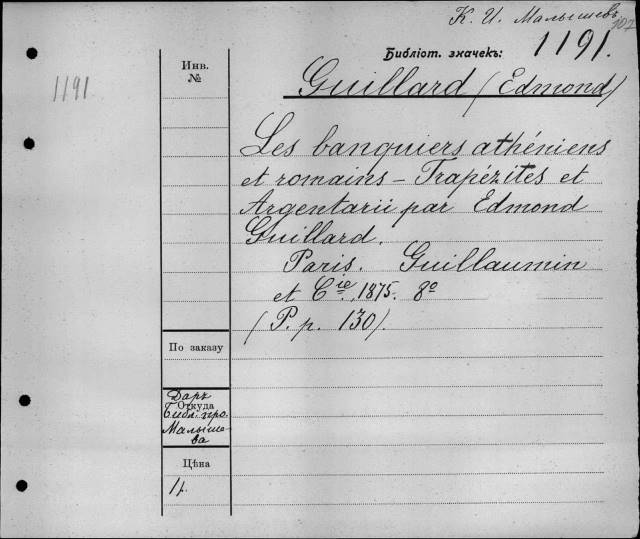 К. И. Малышевъ
107
Библіот. значекъ: 1191.
1191
Инв.
№
Guillard (Edmond)
Les banquiers athéniens
et romains – Trapézites et
Argentarii par Edmond
Guillard.
Paris. Guillaumin
et Cie, 1875. 8º
(P. p. 130).
По заказу
Даръ
Откуда
Библ. про.
Малыше-
ва
Цѣна